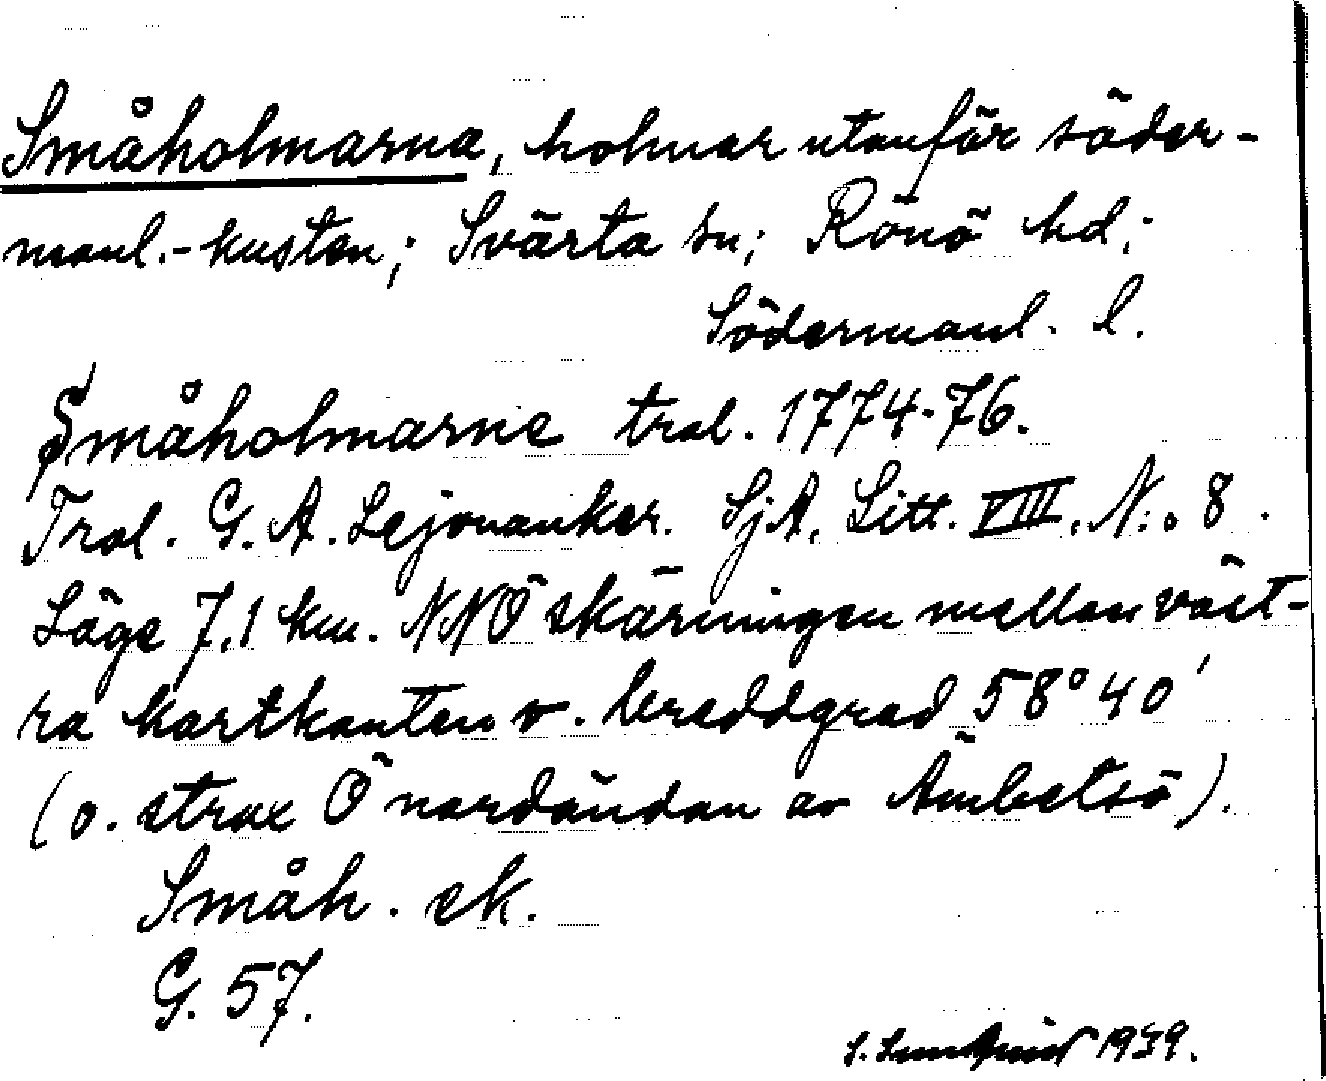 Småholmarna, holmar utanför söder-
manl.-kusten; Svärta sn; Rönö hd;
Södermanl. l.
Småholmarne tral. 1774-76.
Tral. G. A. Lejonanker. SjA. Litt. VIII. N:o 8.
Läge 7,1 km. NNÖ skärningen mellan väst-
ra kartkanten o. breddgrad 58° 40'
(o. strax Ö nordändan av Ämbetsö).
Småh. ek.
G. 57.
S. Lundqvist 1939.